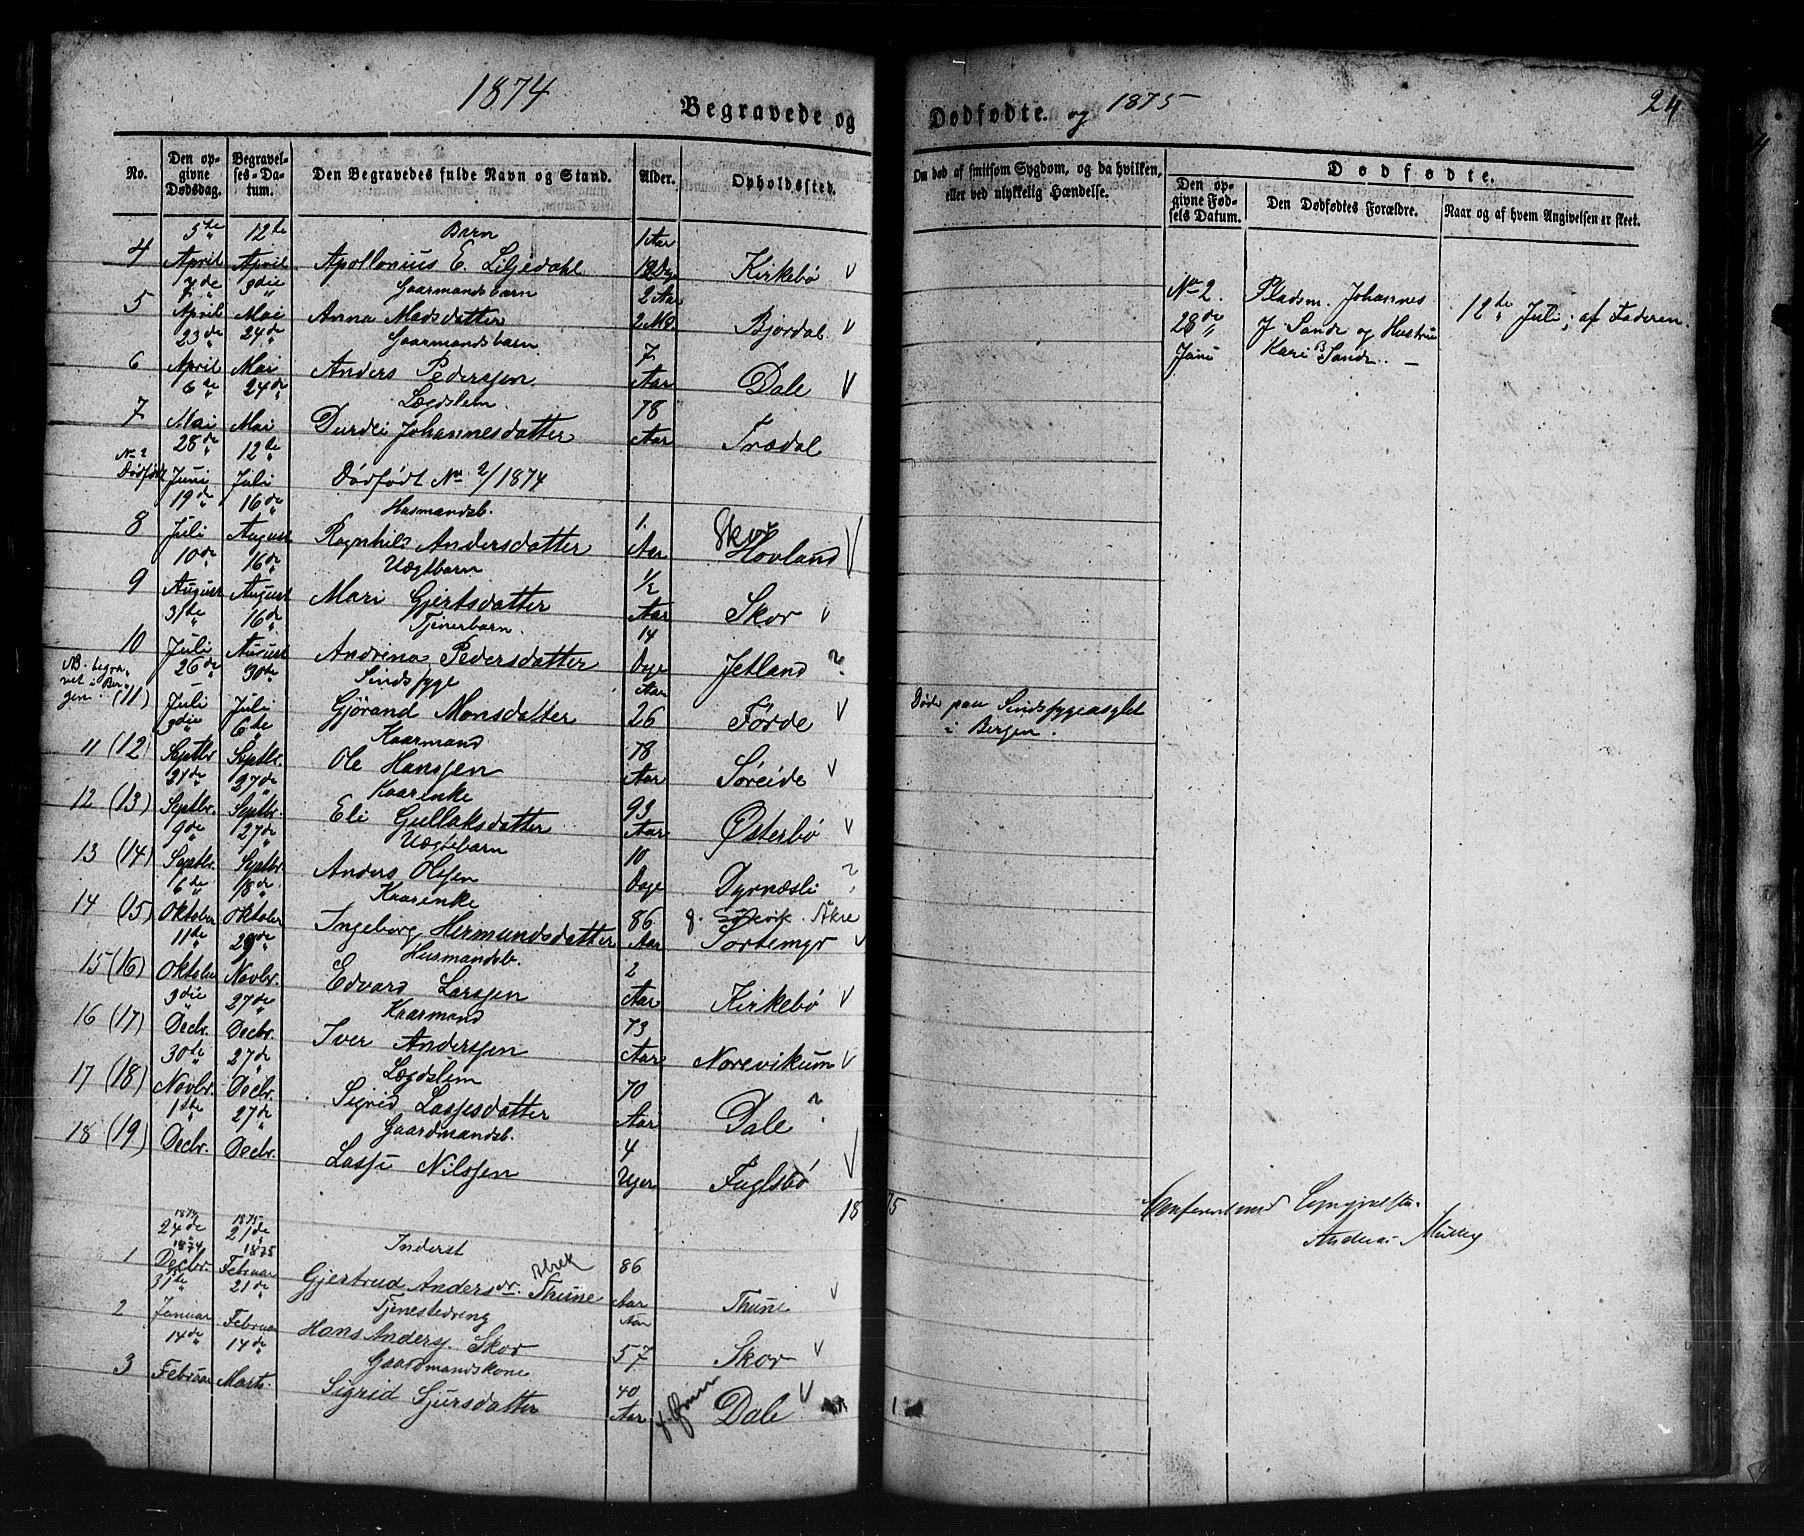 1874
Begravede og
Dødfødte. og 1875
24
No.
Den opgivne Dødsdag.
Begravelses-Datum.
Den Begravedes fulde Navn og Stand.
Alder.
Opholdssted.
Om død af smitsom Sygdom, og da hvilken, eller ved ulykkelig Hændelse.
Dødfødte.
Den opgivne Fødsels Datum.
Den Dødfødtes Forældre.
Naar og af hvem Angivelsen er skeet.
5te 12te Barn 1 Aar
4 April April Apollonius E. Liljedahl 12 Dge Kirkebø
7de 3die Gaarmandsbarn 2 Aar
5 April Mai Anna Madsdatter 2 Md. Bjordal
23de 24de Gaarmandsbarn 7
6 April Mai Anders Pederssen Aar Dale
6te 24de Lægdslem 78
7 Mai Mai Durdei Johannesdatter Aar Trædal
No 2 28de 12te
Dødfødt Juni Juli Dødfødt No 2/1874
19de 16de Husmandsb. 1.
8 Juli August Ragnhild Andersdatter Aar Skor Hovland
10de 16de Vægtbarn 1/2
9 August August Mari Gjertsdatter Aar Skor
31te 16de Tjenerbarn 14
10 Juli August Andrina Pedersdatter Dage Jetland ?
NB. begravet i Bergen. 26de 30te Sindssyge Aar
(11) Juli Juli Gjørand Monsdatter 26 Førde
Døde paa Sindssygeasylet
i Bergen.
3die 6te Kaarmand 78
11 (12) Septbr Septbr. Ole Hanssen Aar Søreide
21de 27de Kaarenke 93
12 (13) Septbr. Septbr. Eli Gullaksdatter Aar Østerbø
9de 27de Vægtebarn 10
13 (14) Septbr. Septbr. Anders Olssen Dage Dyrnæsli ?
6te 18de Kaarenke
14 (15) Oktober Oktober Ingeborg Hermundsdatter 86 Aar Torvemyr
11te 29de Husmandsb. 2
15 (16) Oktober Novbr. Edvard Larssen Aar Kirkebø
3die 27de Kaarmand 73
16 (17) Decbr. Decbr. Iver Anderssen Aar Norevikum
30te 27de Lægdslem 70
17 (18) Novbr. Decbr. Sigrid Lassesdatter Aar Dale ?
1ste 27de Gaardmandsb. 4
18 (19) Decbr. Decbr. Lasse Nilssen Uger Fuglsbø
1875
1874 1875
24de 21de
1874 1875 Inderst 86
1 Decbr Februar Gjertrud Andersdr. Thune Aar Thune
31te 21de Tjenestedreng Aar
2 Januar Februar Hans Anders. Skor 57 Skor
14de 14de Gaardmandskone 40
3 Februar Marts. Sigrid Sjursdatter Aar Dale
No 2. Pladsm. Johannes 12te Juli; af Faderen.
28de J. Sande og Hustru
Juni Kari Sande.
Andreas